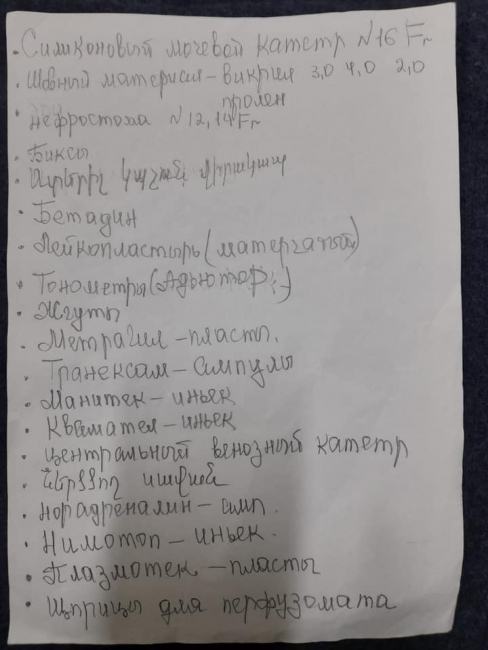 · Силиконовый мочевой катетр N16 Fr
· Шовный материал – викрил 3,0 4,0 2,0
пролен
· Нефростома N 12, 14 Fr
· Биксы
· կաշանի վիրակապ
· Бетадин
· Лейкопластырь (матерчатый)
· Тонометры (Адьютор)
· Жгуты
· Метрагил – пласты.
· Транексам – ампулы
· Манитек – иньек
· Квамател – иньек
· центральный венозный катетр
· Ներքին
· норадреналин – амп.
· Нимотоп – иньек.
· Плазмотек – пласты
· Шприцы для перфузомата